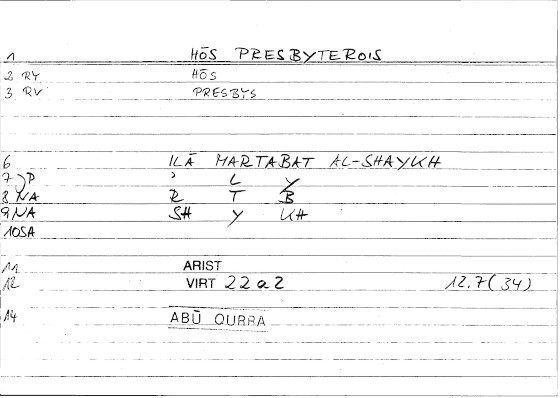 1 HŌS PRESBYTEROIS
2 RY HŌS
3 RV PRESBYS
6 ILĀ MARTABAT AL-SHAYKH
7 P ʾ L Y
8 NA R T B
9 NA SH Y KH
10 SA
11 ARIST
12 VIRT 22a2 12.7(34)
14 ABŪ QURRA